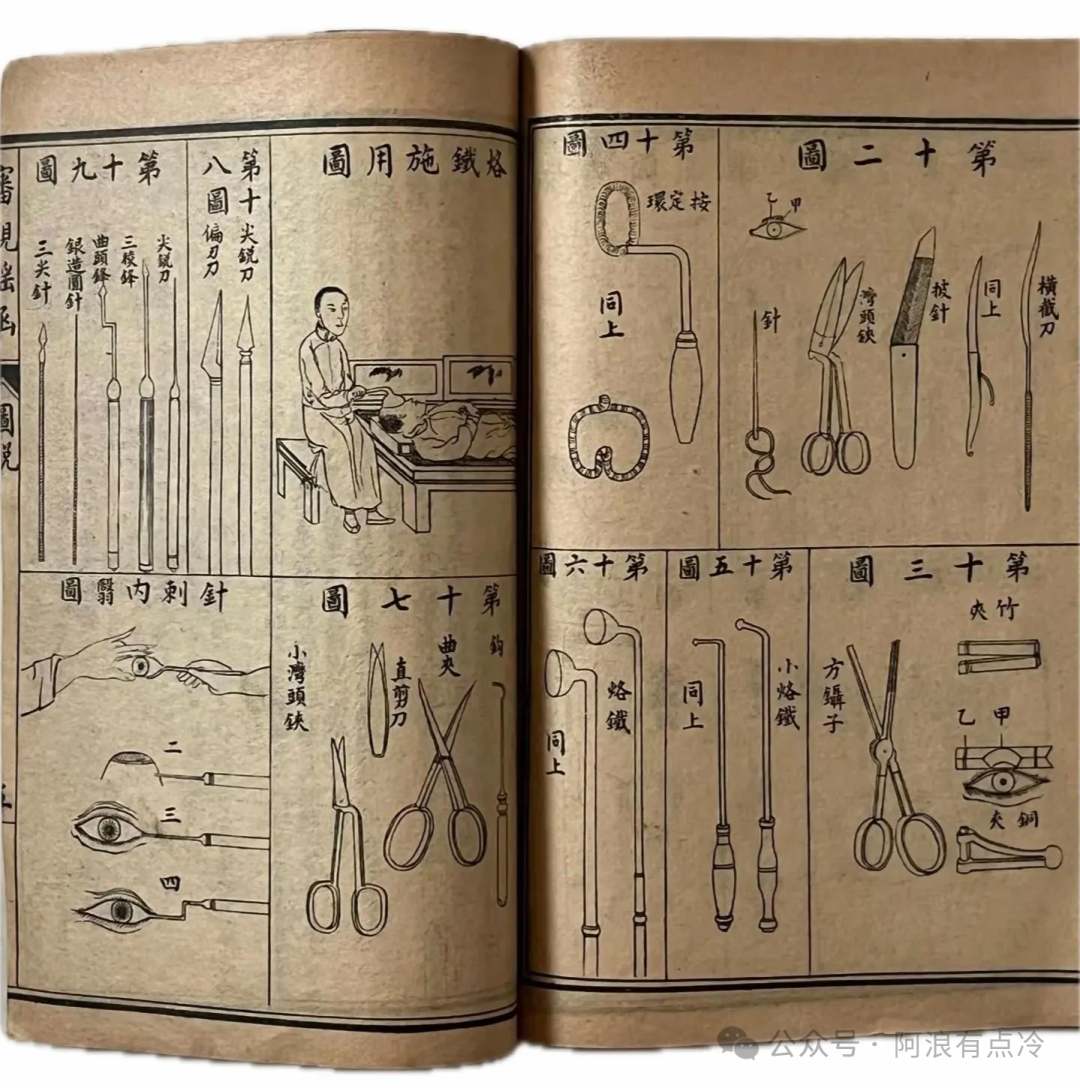 第十二圖
甲
乙
橫截刀
同上
披針
灣頭鋏
針
第十四圖
按定環
同上
第十三圖
竹夾
甲
乙
銅夾
方鑷子
第十五圖
小烙鐵
同上
第十六圖
烙鐵
同上
烙鐵施用圖
第十八圖
尖銳刀
偏刃刀
第十九圖
尖銳刀
三稜鋒
曲頭鋒
銀造圓針
三尖針
第十七圖
鈎
曲夾
直剪刀
小灣頭鋏
針刺內翳圖
二
三
四
審視瑤函
圖說
五
公众号·阿浪有点冷